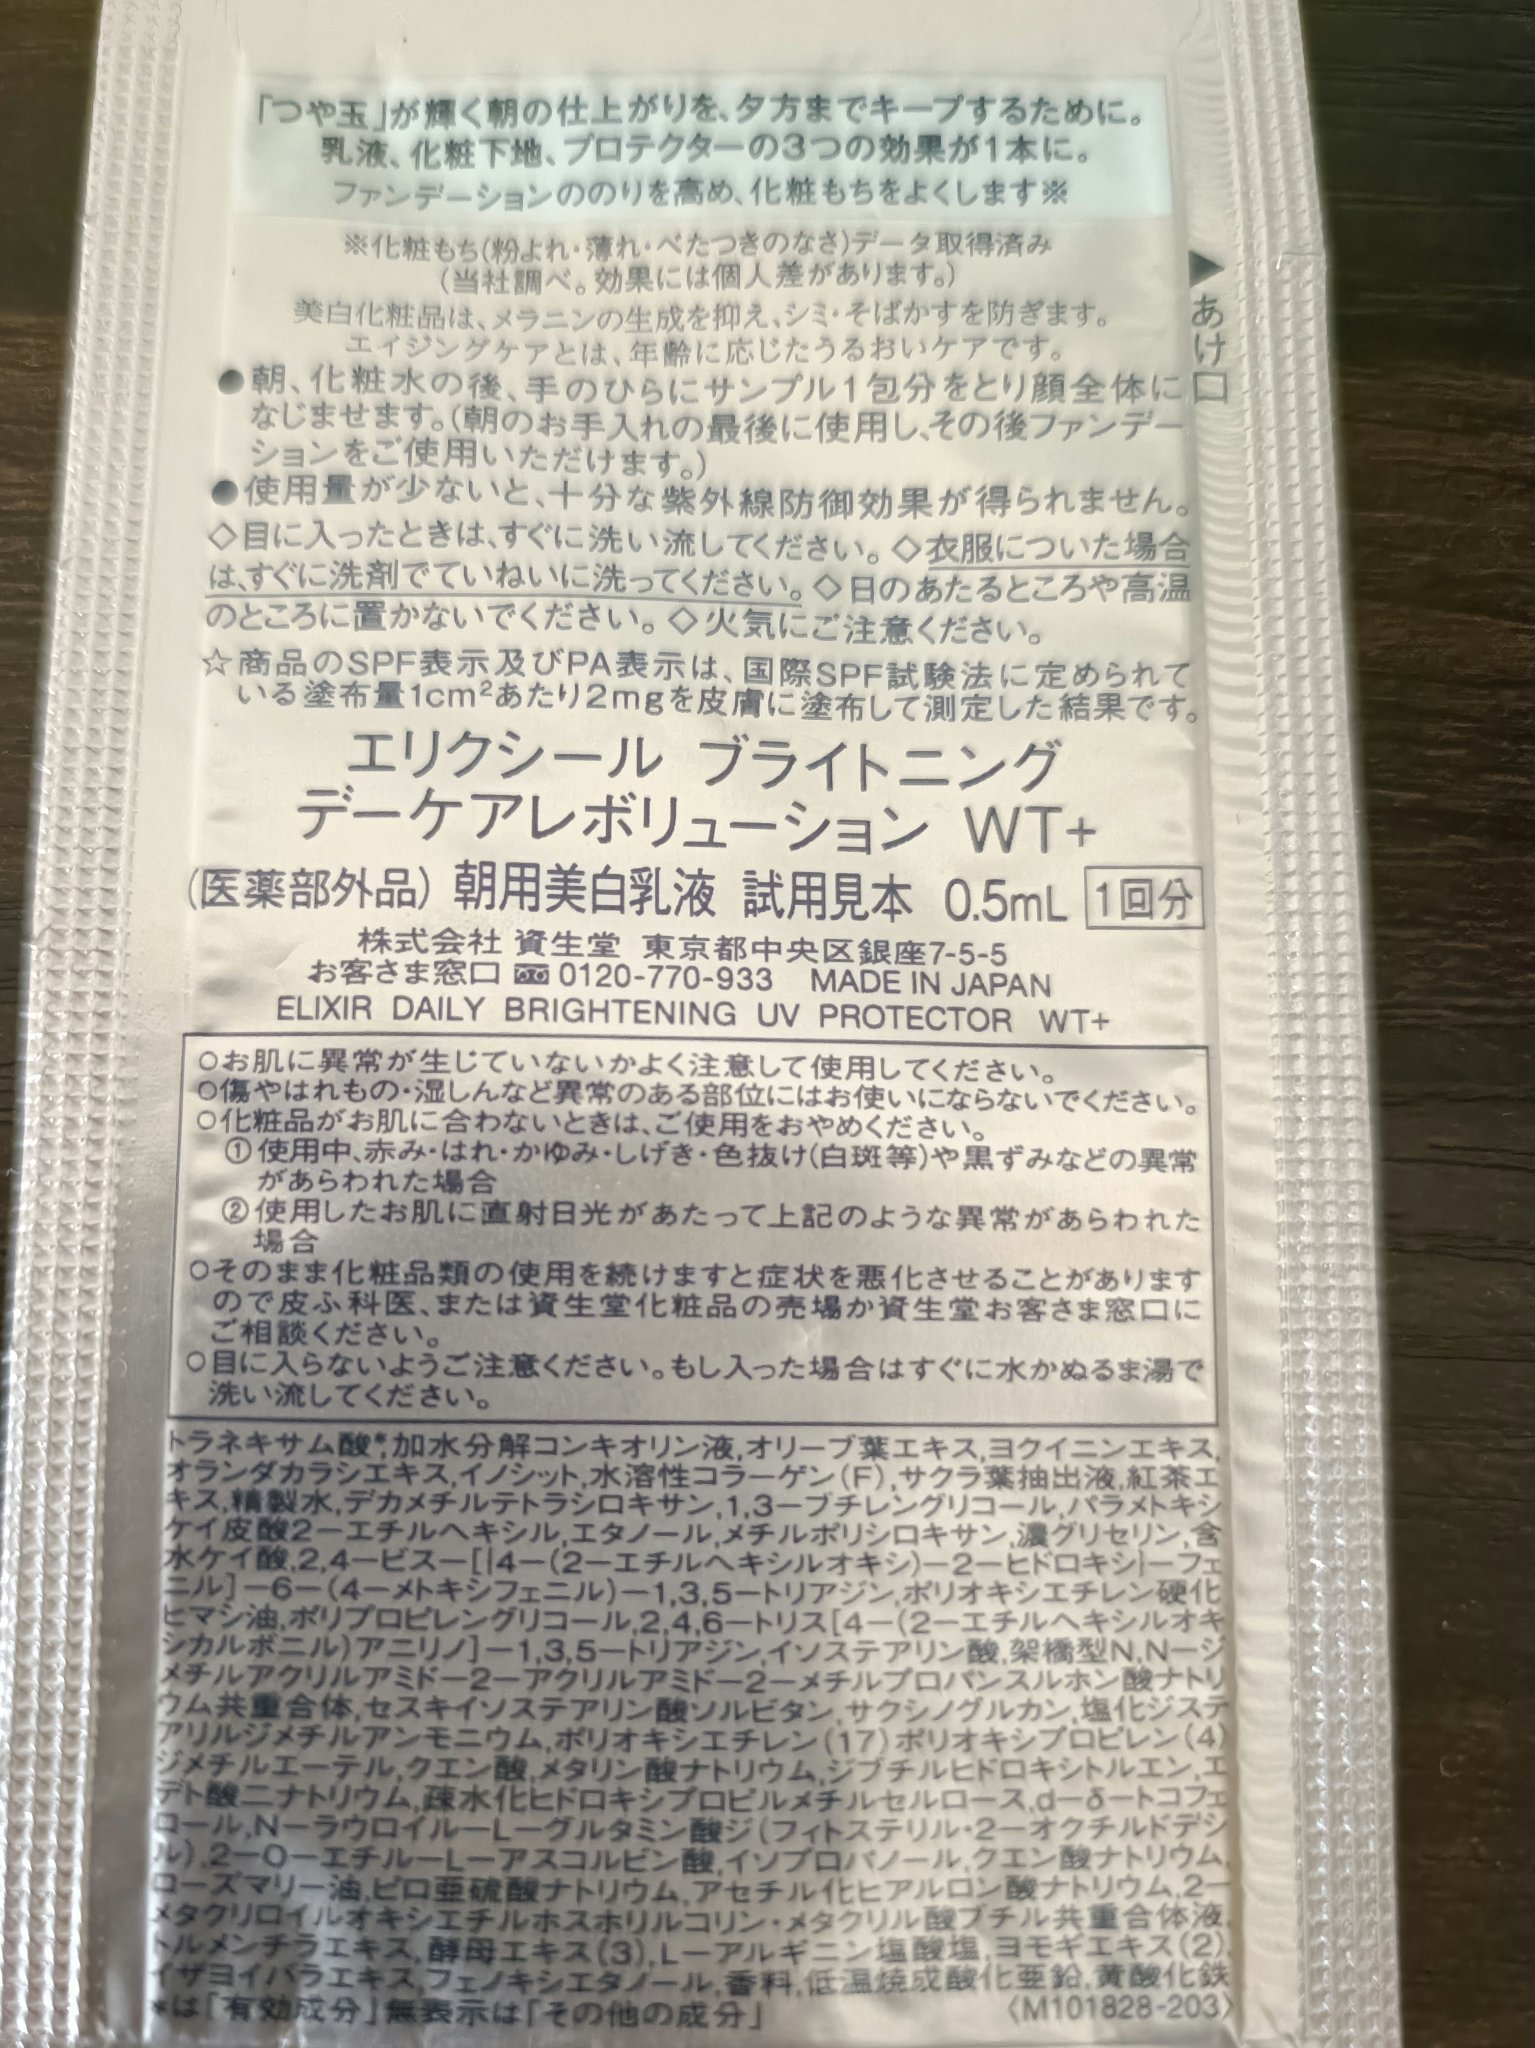 「つや玉」が輝く朝の仕上がりを、夕方までキープするために。
乳液、化粧下地、プロテクターの3つの効果が1本に。
ファンデーションののりを高め、化粧もちをよくします※
※化粧もち(粉よれ・薄れ・べたつきのなさ)データ取得済み
(当社調べ。効果には個人差があります。)
美白化粧品は、メラニンの生成を抑え、シミ・そばかすを防ぎます。
エイジングケアとは、年齢に応じたうるおいケアです。
●朝、化粧水の後、手のひらにサンプル1包分をとり顔全体に
なじませます。(朝のお手入れの最後に使用し、その後ファンデー
ションをご使用いただけます。)
●使用量が少ないと、十分な紫外線防御効果が得られません。
◇目に入ったときは、すぐに洗い流してください。◇衣服についた場合
は、すぐに洗剤でていねいに洗ってください。◇日のあたるところや高温
のところに置かないでください。◇火気にご注意ください。
☆商品のSPF表示及びPA表示は、国際SPF試験法に定められて
いる塗布量1cm²あたり2mgを皮膚に塗布して測定した結果です。
▶あけ口
エリクシール ブライトニング
デーケアレボリューション WT+
(医薬部外品) 朝用美白乳液 試用見本 0.5mL 1回分
株式会社 資生堂 東京都中央区銀座7-5-5
お客さま窓口 0120-770-933 MADE IN JAPAN
ELIXIR DAILY BRIGHTENING UV PROTECTOR WT+
○お肌に異常が生じていないかよく注意して使用してください。
○傷やはれもの・湿しんなど異常のある部位にはお使いにならないでください。
○化粧品がお肌に合わないときは、ご使用をおやめください。
①使用中、赤み・はれ・かゆみ・しげき・色抜け(白斑等)や黒ずみなどの異常
があらわれた場合
②使用したお肌に直射日光があたって上記のような異常があらわれた
場合
○そのまま化粧品類の使用を続けますと症状を悪化させることがあります
ので皮ふ科医、または資生堂化粧品の売場か資生堂お客さま窓口に
ご相談ください。
○目に入らないようご注意ください。もし入った場合はすぐに水かぬるま湯で
洗い流してください。
トラネキサム酸*,加水分解コンキオリン液,オリーブ葉エキス,ヨクイニンエキス,
オランダカラシエキス,イノシット,水溶性コラーゲン(F),サクラ葉抽出液,紅茶エ
キス,精製水,デカメチルテトラシロキサン,1,3-ブチレングリコール,パラメトキシ
ケイ皮酸2-エチルヘキシル,エタノール,メチルポリシロキサン,濃グリセリン,含
水ケイ酸,2,4-ビス-[{4-(2-エチルヘキシルオキシ)-2-ヒドロキシ}-フェ
ニル]-6-(4-メトキシフェニル)-1,3,5-トリアジン,ポリオキシエチレン硬化
ヒマシ油,ポリプロピレングリコール,2,4,6-トリス[4-(2-エチルヘキシルオキ
シカルボニル)アニリノ]-1,3,5-トリアジン,イソステアリン酸,架橋型N,N-ジ
メチルアクリルアミド-2-アクリルアミド-2-メチルプロパンスルホン酸ナトリ
ウム共重合体,セスキイソステアリン酸ソルビタン,サクシノグルカン,塩化ジステ
アリルジメチルアンモニウム,ポリオキシエチレン(17)ポリオキシプロピレン(4)
ジメチルエーテル,クエン酸,メタリン酸ナトリウム,ジブチルヒドロキシトルエン,エ
デト酸二ナトリウム,疎水化ヒドロキシプロピルメチルセルロース,d-δ-トコフェ
ロール,N-ラウロイル-L-グルタミン酸ジ(フィトステリル・2-オクチルドデシ
ル),2-O-エチル-L-アスコルビン酸,イソプロパノール,クエン酸ナトリウム,
ローズマリー油,ピロ亜硫酸ナトリウム,アセチル化ヒアルロン酸ナトリウム,2-
メタクリロイルオキシエチルホスホリルコリン・メタクリル酸ブチル共重合体液,
トルメンチラエキス,酵母エキス(3),L-アルギニン塩酸塩,ヨモギエキス(2),
イザヨイバラエキス,フェノキシエタノール,香料,低温焼成酸化亜鉛,黄酸化鉄
*は「有効成分」無表示は「その他の成分」 〈M101828-203〉